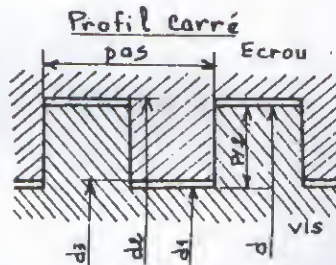 Profil Carré
pas
Ecrou
P/2
vis
d3
de
d1
D